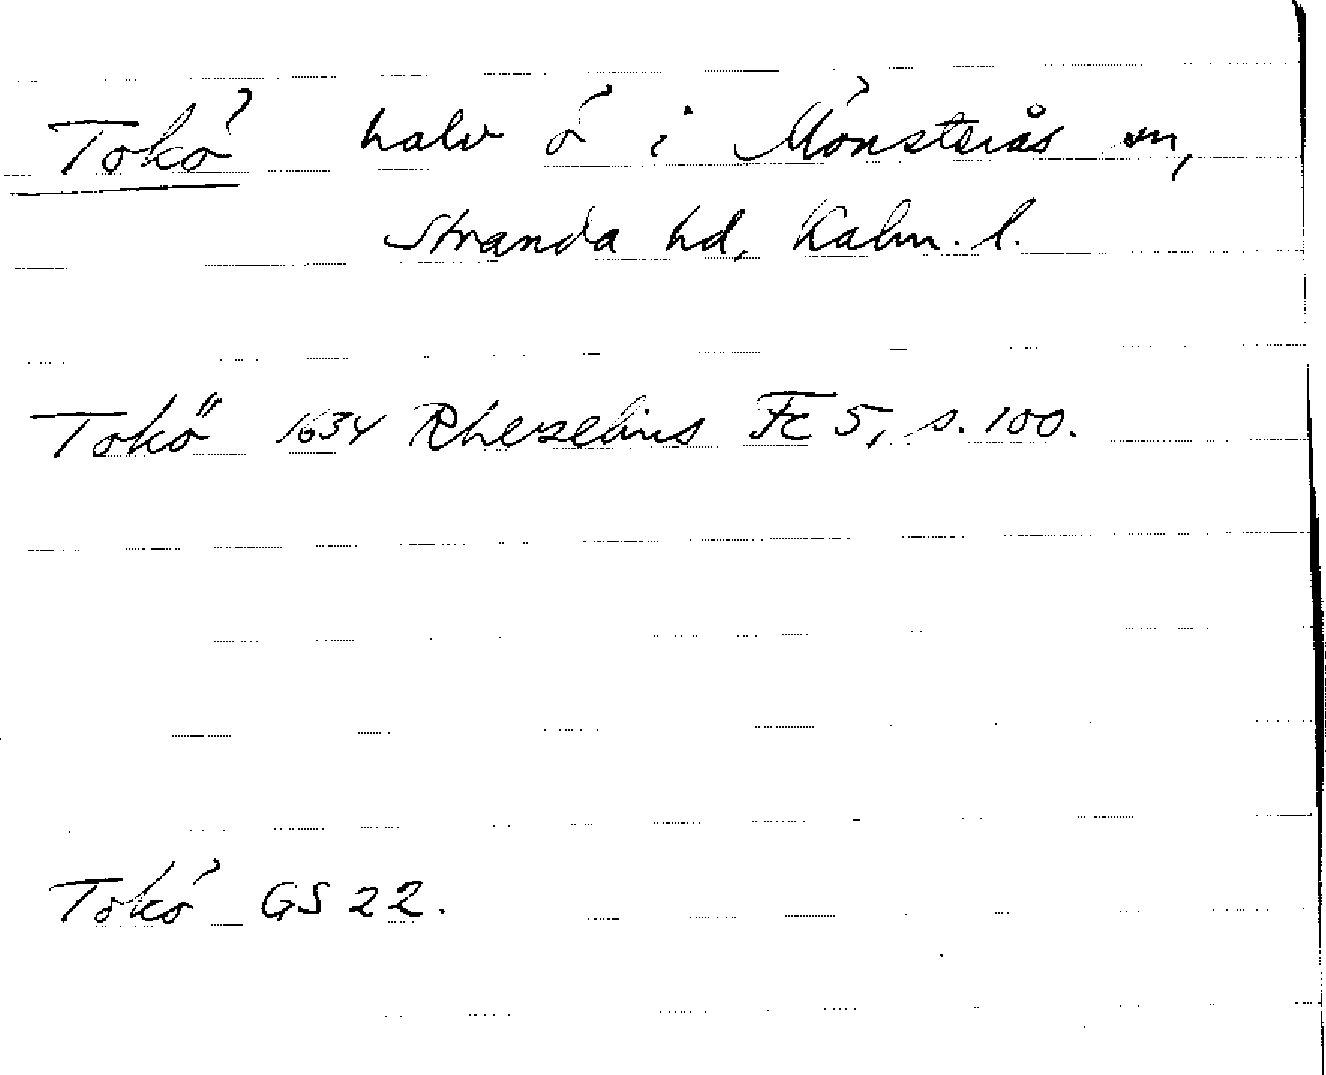 Tokö halv ö i Mönsterås sn,
Stranda hd, Kalm. l.
Tokö 1634 Rhezelius Fc 5, s. 100.
Tokö GS 22.